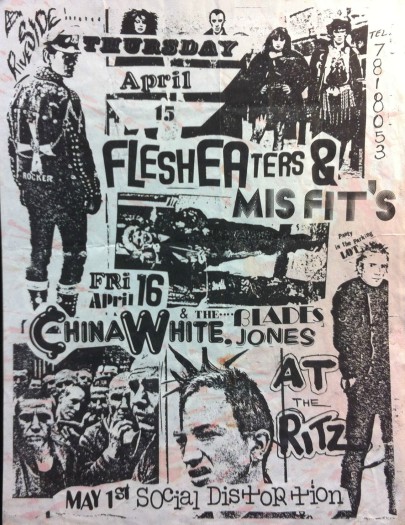 RiverSIDE
THURSDAY
TEL.
7818053
April
15
ROCKER
FLESHEATERS &
MISFIT'S
Party
in the Parking
LOT
FRi
April 16
& THE.... BLADES
CHINA WHITE. JONES
AT
THE
RiTZ
MAY 1st SOCIAL DISTORTION